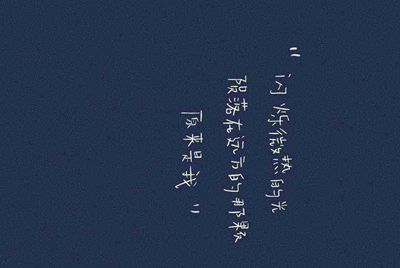 "闪烁微热的光
陨落在远方的那颗
原来是我"